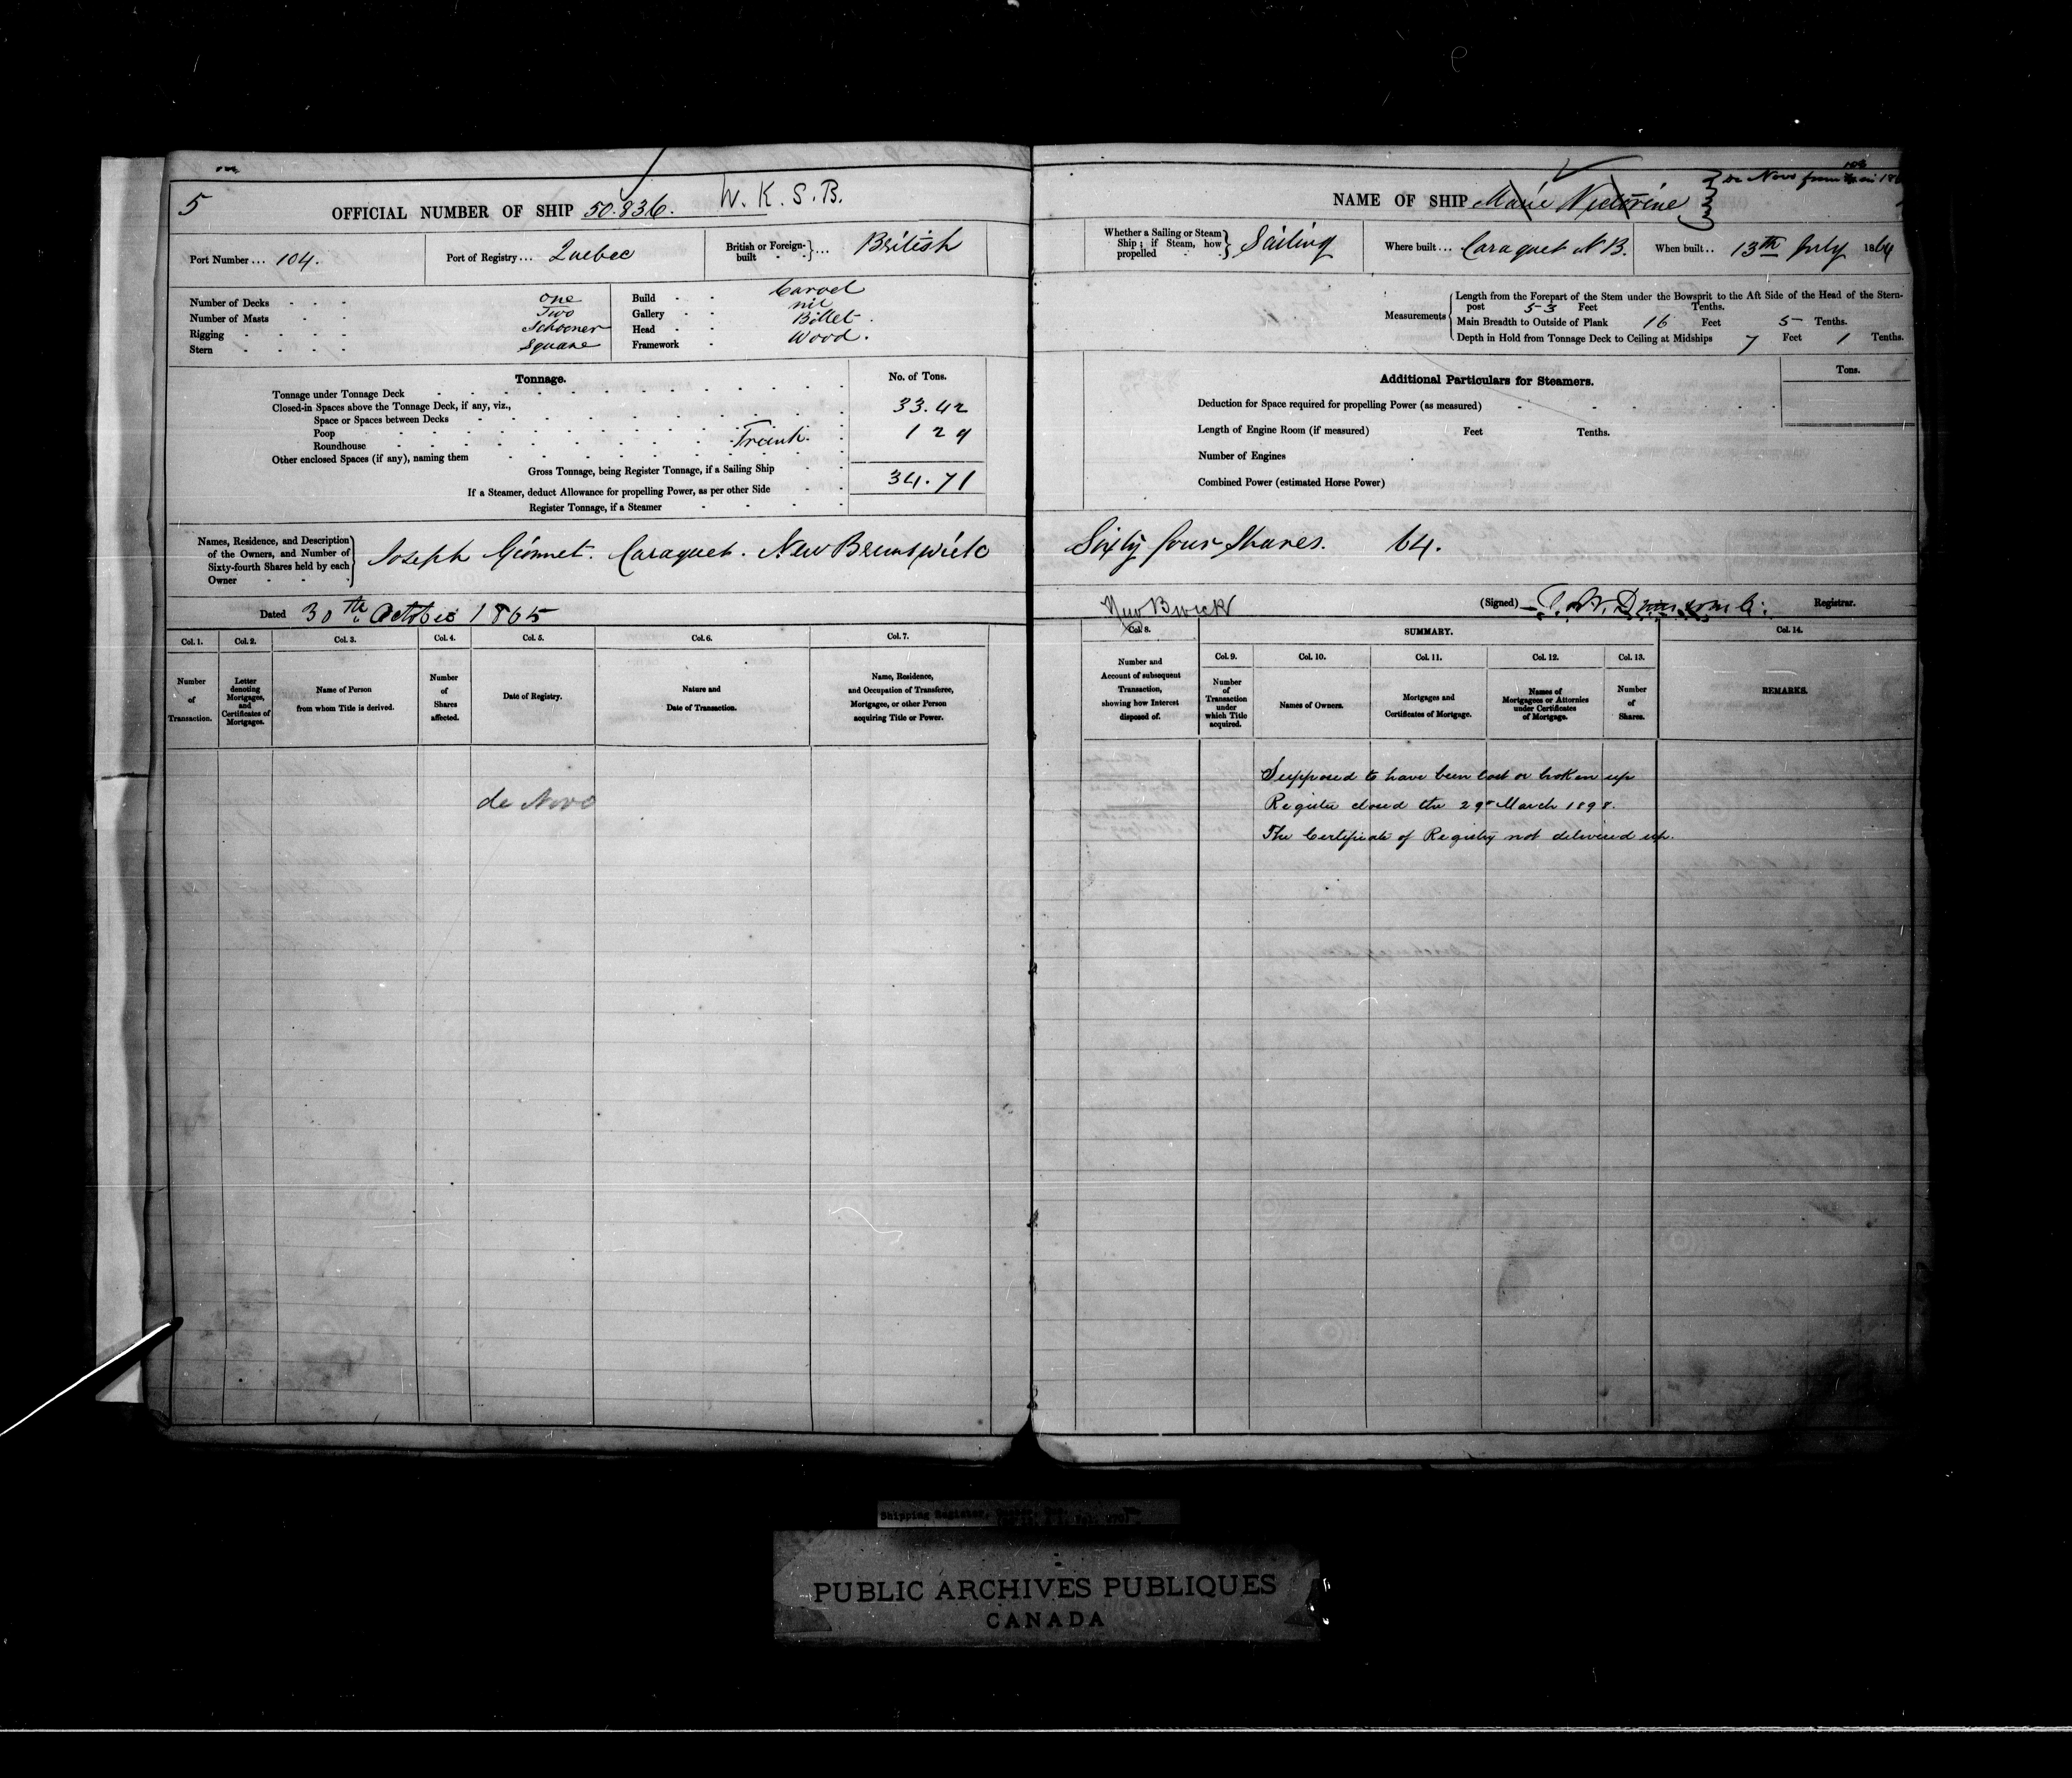 5
OFFICIAL NUMBER OF SHIP 50.836. W. K. S. B.
Port Number ... 104.
Port of Registry ... Quebec
British or Foreign-built ... British
Number of Decks One
Number of Masts Two
Rigging Schooner
Stern Square
Build Carvel
Gallery nil
Head Billet
Framework Wood.
Tonnage.
No. of Tons.
Tonnage under Tonnage Deck
Closed-in Spaces above the Tonnage Deck, if any, viz., 33.42
Space or Spaces between Decks
Poop 1 29
Roundhouse
Other enclosed Spaces (if any), naming them
Gross Tonnage, being Register Tonnage, if a Sailing Ship 34.71
If a Steamer, deduct Allowance for propelling Power, as per other Side
Register Tonnage, if a Steamer
Names, Residence, and Description of the Owners, and Number of Sixty-fourth Shares held by each Owner
Joseph Gionnet. Caraquet. New Brunswick
Dated 30th October 1865
Col. 1. Col. 2. Col. 3. Col. 4. Col. 5. Col. 6. Col. 7.
Number of Transaction.
Letter denoting Mortgages, and Certificates of Mortgages.
Name of Person from whom Title is derived.
Number of Shares affected.
Date of Registry.
Nature and Date of Transaction.
Name, Residence, and Occupation of Transferee, Mortgagee, or other Person acquiring Title or Power.
de Novo
NAME OF SHIP Marie Victorine
de Novo from
Whether a Sailing or Steam Ship; if Steam, how propelled Sailing
Where built ... Caraquet N B.
When built .. 13th July 1864
Measurements
Length from the Forepart of the Stem under the Bowsprit to the Aft Side of the Head of the Stern-
post 53 Feet Tenths.
Main Breadth to Outside of Plank 16 Feet 5 Tenths.
Depth in Hold from Tonnage Deck to Ceiling at Midships 7 Feet 1 Tenths.
Additional Particulars for Steamers.
Tons.
Deduction for Space required for propelling Power (as measured)
Length of Engine Room (if measured) Feet Tenths.
Number of Engines
Combined Power (estimated Horse Power)
Sixty four Shares. 64.
New Bwick
(Signed) Registrar.
Col. 8.
SUMMARY.
Col. 14.
Col. 9. Col. 10. Col. 11. Col. 12. Col. 13.
Number and Account of subsequent Transaction, showing how Interest disposed of.
Number of Transaction under which Title acquired.
Names of Owners.
Mortgages and Certificates of Mortgage.
Names of Mortgagees or Attornies under Certificates of Mortgage.
Number of Shares.
REMARKS.
Supposed to have been lost or broken up
Register closed the 29th March 1898.
The Certificate of Registry not delivered up.
Shipping Register,
PUBLIC ARCHIVES PUBLIQUES
CANADA